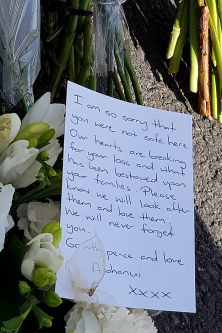 I am so sorry that
you were not safe here
Our hearts are breaking
for your loss and what
has been bestowed upon
your families. Please
know we will look after
them and love them,
we will never forget
you.
Go peace and love
xxxx